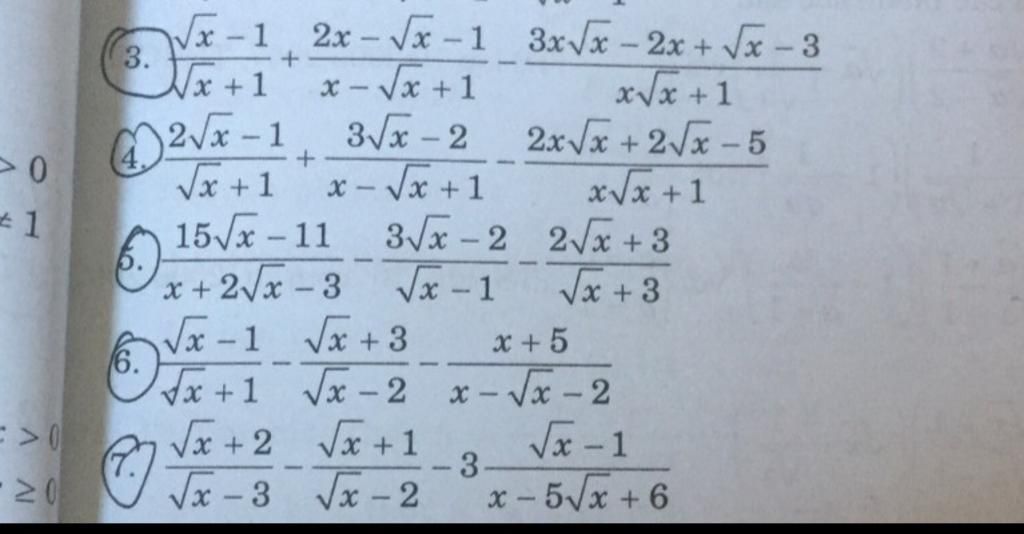 3. \frac{\sqrt{x}-1}{\sqrt{x}+1} + \frac{2x-\sqrt{x}-1}{x-\sqrt{x}+1} - \frac{3x\sqrt{x}-2x+\sqrt{x}-3}{x\sqrt{x}+1}
> 0
4. \frac{2\sqrt{x}-1}{\sqrt{x}+1} + \frac{3\sqrt{x}-2}{x-\sqrt{x}+1} - \frac{2x\sqrt{x}+2\sqrt{x}-5}{x\sqrt{x}+1}
≠ 1
5. \frac{15\sqrt{x}-11}{x+2\sqrt{x}-3} - \frac{3\sqrt{x}-2}{\sqrt{x}-1} - \frac{2\sqrt{x}+3}{\sqrt{x}+3}
6. \frac{\sqrt{x}-1}{\sqrt{x}+1} - \frac{\sqrt{x}+3}{\sqrt{x}-2} - \frac{x+5}{x-\sqrt{x}-2}
> 0
7. \frac{\sqrt{x}+2}{\sqrt{x}-3} - \frac{\sqrt{x}+1}{\sqrt{x}-2} - 3\frac{\sqrt{x}-1}{x-5\sqrt{x}+6}
≥ 0